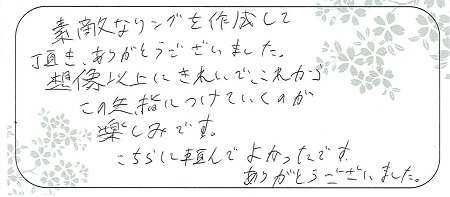 素敵なリングを作成して
頂き、ありがとうございました。
想像以上にきれいで、これから
この先、指につけていくのが
楽しみです。
こちらに頼んでよかったです
ありがとうございました。